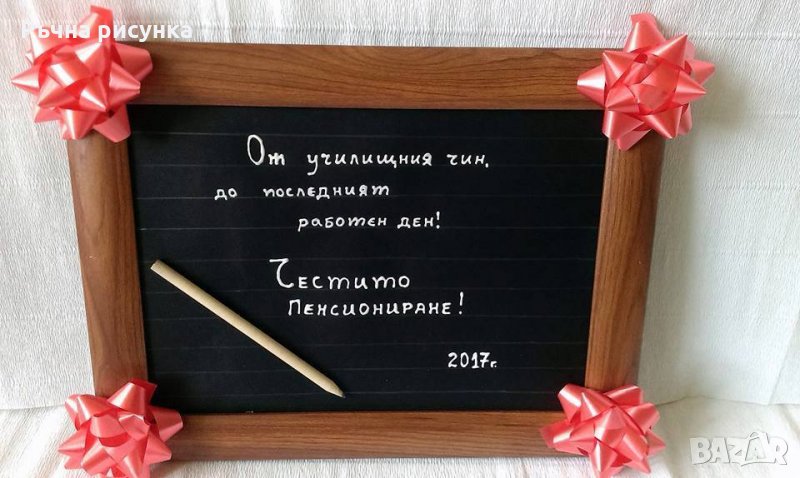 Ръчна рисунка
От училищния чин,
до последният
работен ден!
Честито
Пенсиониране!
2017г.
BAZAR